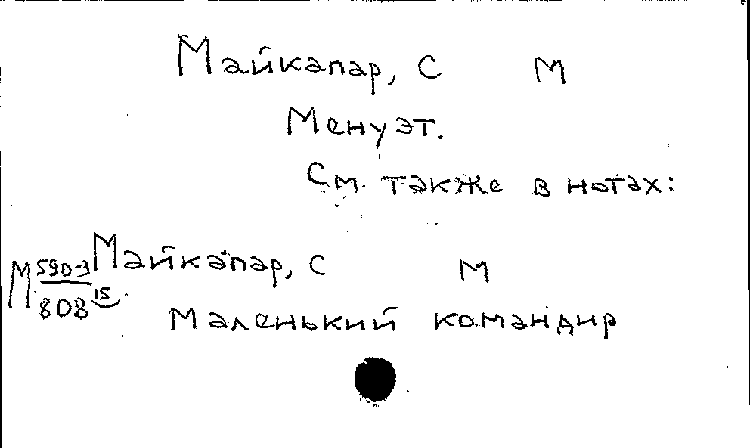 Майкапар, С М
Менуэт.
См. также в нотах:
М 590-3/808 15 Майкапар, С М
Маленький командир